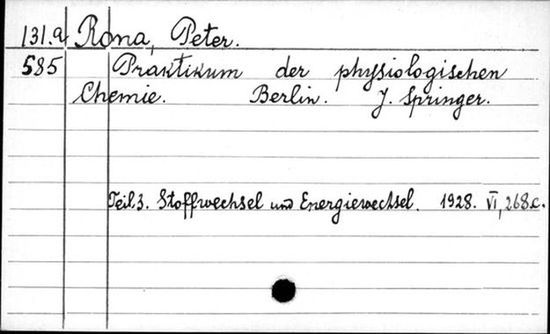 131.a Rona, Peter.
585 Praktikum der physiologischen
Chemie. Berlin. J. Springer.
Teil.3. Stoffwechsel und Energiewechsel. 1928. VI, 268.c.